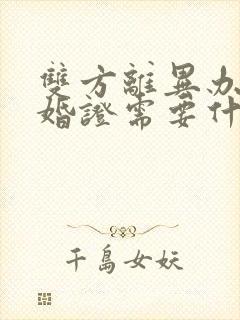 雙方離異办
婚證需要什
千島女妖